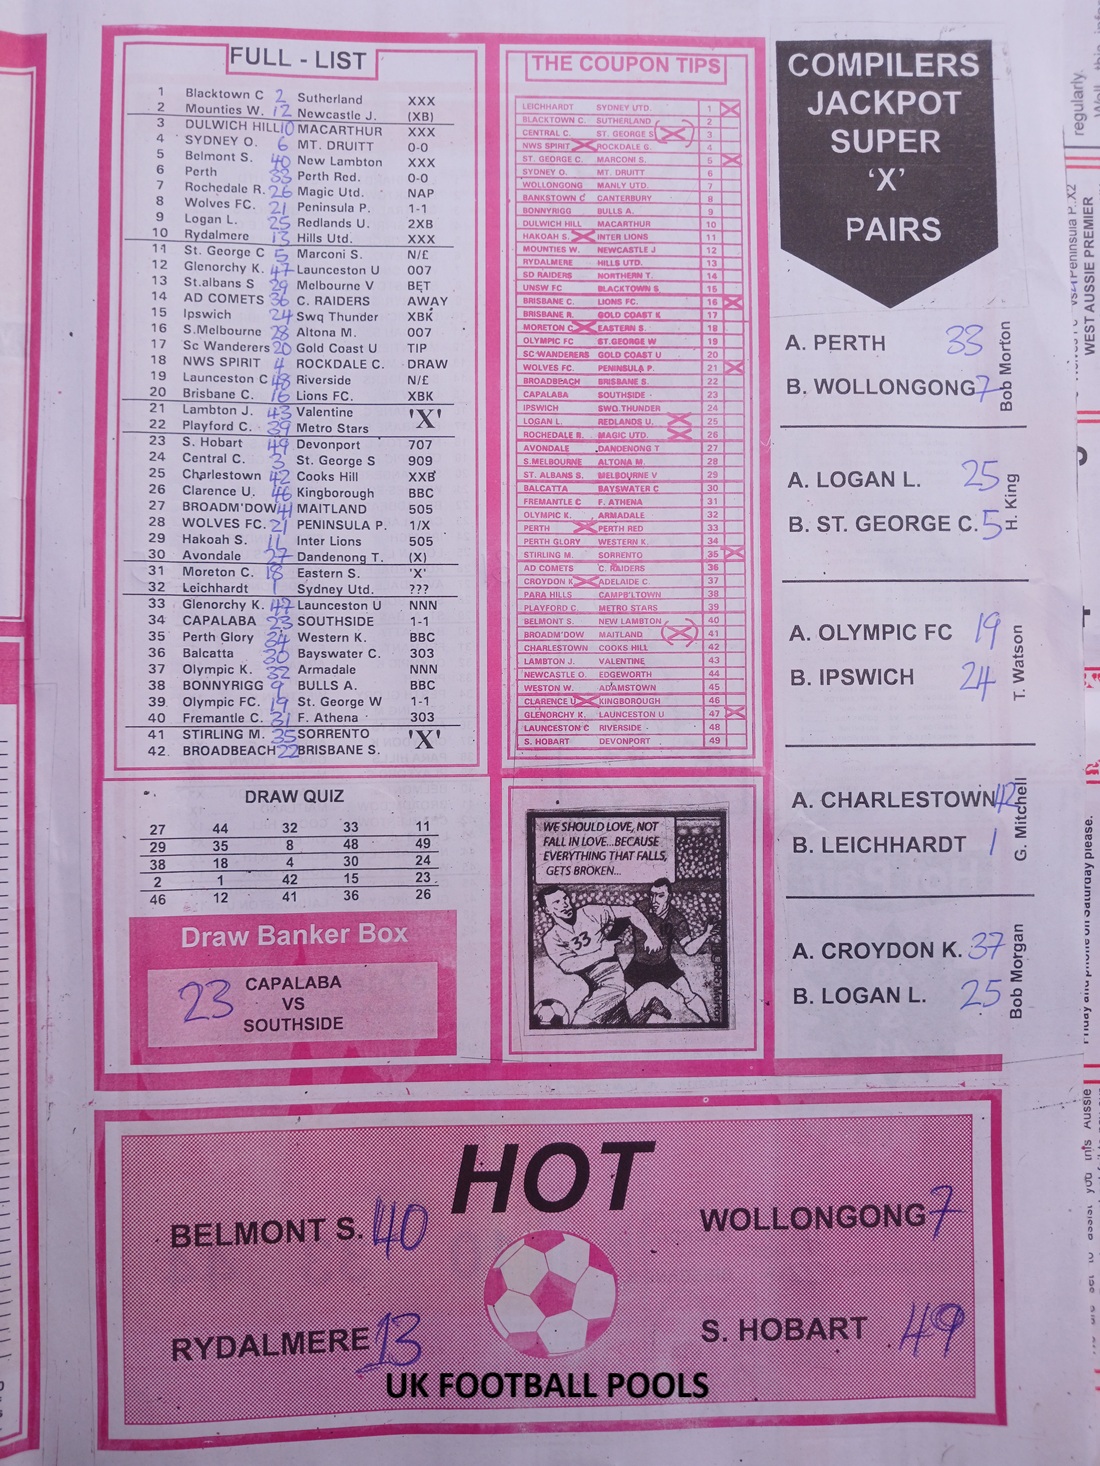 FULL - LIST
1 Blacktown C 2 Sutherland XXX
2 Mounties W. 12 Newcastle J. (XB)
3 DULWICH HILL 10 MACARTHUR XXX
4 SYDNEY O. 6 MT. DRUITT 0-0
5 Belmont S. 40 New Lambton XXX
6 Perth 33 Perth Red. 0-0
7 Rochedale R. 26 Magic Utd. NAP
8 Wolves FC. 21 Peninsula P. 1-1
9 Logan L. 25 Redlands U. 2XB
10 Rydalmere 13 Hills Utd. XXX
11 St. George C 5 Marconi S. N/£
12 Glenorchy K. 47 Launceston U 007
13 St.albans S 29 Melbourne V BET
14 AD COMETS 36 C. RAIDERS AWAY
15 Ipswich 24 Swq Thunder XBK
16 S.Melbourne 28 Altona M. 007
17 Sc Wanderers 20 Gold Coast U TIP
18 NWS SPIRIT 4 ROCKDALE C. DRAW
19 Launceston C 48 Riverside N/£
20 Brisbane C. 16 Lions FC. XBK
21 Lambton J. 43 Valentine
22 Playford C. 39 Metro Stars
'X'
23 S. Hobart 49 Devonport 707
24 Central C. 3 St. George S 909
25 Charlestown 42 Cooks Hill XXB
26 Clarence U. 46 Kingborough BBC
27 BROADM'DOW 41 MAITLAND 505
28 WOLVES FC. 21 PENINSULA P. 1/X
29 Hakoah S. 11 Inter Lions 505
30 Avondale 27 Dandenong T. (X)
31 Moreton C. 18 Eastern S. 'X'
32 Leichhardt 1 Sydney Utd. ???
33 Glenorchy K. 47 Launceston U NNN
34 CAPALABA 23 SOUTHSIDE 1-1
35 Perth Glory 34 Western K. BBC
36 Balcatta 30 Bayswater C. 303
37 Olympic K. 32 Armadale NNN
38 BONNYRIGG 9 BULLS A. BBC
39 Olympic FC. 19 St. George W 1-1
40 Fremantle C. 31 F. Athena 303
41 STIRLING M. 35 SORRENTO
42. BROADBEACH 22 BRISBANE S.
'X'
THE COUPON TIPS
LEICHHARDT SYDNEY UTD. 1 X
BLACKTOWN C. SUTHERLAND 2
CENTRAL C. ST. GEORGE S (X) 3
NWS SPIRIT X ROCKDALE G. 4
ST. GEORGE C. MARCONI S. 5 X
SYDNEY O. MT. DRUITT 6
WOLLONGONG MANLY UTD. 7
BANKSTOWN C CANTERBURY 8
BONNYRIGG BULLS A. 9
DULWICH HILL MACARTHUR 10
HAKOAH S. X INTER LIONS 11
MOUNTIES W. NEWCASTLE J 12
RYDALMERE HILLS UTD. 13
SD RAIDERS NORTHERN T. 14
UNSW FC BLACKTOWN S 15
BRISBANE C. LIONS FC. 16 X
BRISBANE R. GOLD COAST K 17
MORETON C X EASTERN S. 18
OLYMPIC FC ST.GEORGE W 19
SC WANDERERS GOLD COAST U 20
WOLVES FC. PENINSULA P. 21 X
BROADBEACH BRISBANE S. 22
CAPALABA SOUTHSIDE 23
IPSWICH SWQ.THUNDER 24
LOGAN L. REDLANDS U. X 25
ROCHEDALE R. MAGIC UTD. X 26
AVONDALE DANDENONG T 27
S.MELBOURNE ALTONA M. 28
ST. ALBANS S. MELBOURNE V 29
BALCATTA BAYSWATER C 30
FREMANTLE C F. ATHENA 31
OLYMPIC K. ARMADALE 32
PERTH X PERTH RED 33
PERTH GLORY WESTERN K. 34
STIRLING M. SORRENTO 35 X
AD COMETS C. RAIDERS 36
CROYDON K X ADELAIDE C. 37
PARA HILLS CAMPB'LTOWN 38
PLAYFORD C. METRO STARS 39
BELMONT S. NEW LAMBTON 40
BROADM'DOW MAITLAND (X) 41
CHARLESTOWN COOKS HILL 42
LAMBTON J. VALENTINE 43
NEWCASTLE O. EDGEWORTH 44
WESTON W. ADAMSTOWN 45
CLARENCE U X KINGBOROUGH 46
GLENORCHY K. LAUNCESTON U 47 X
LAUNCESTON C RIVERSIDE 48
S. HOBART DEVONPORT 49
COMPILERS
JACKPOT
SUPER
'X'
PAIRS
A. PERTH 33
B. WOLLONGONG 7
Bob Morton
A. LOGAN L. 25
B. ST. GEORGE C. 5
H. King
A. OLYMPIC FC 19
B. IPSWICH 24
T. Watson
A. CHARLESTOWN 42
B. LEICHHARDT 1
G. Mitchell
A. CROYDON K. 37
B. LOGAN L. 25
Bob Morgan
DRAW QUIZ
27 44 32 33 11
29 35 8 48 49
38 18 4 30 24
2 1 42 15 23
46 12 41 36 26
Draw Banker Box
23 CAPALABA
VS
SOUTHSIDE
WE SHOULD LOVE, NOT
FALL IN LOVE...BECAUSE
EVERYTHING THAT FALLS,
GETS BROKEN...
33
HOT
BELMONT S. 40
WOLLONGONG 7
RYDALMERE 13
S. HOBART 49
UK FOOTBALL POOLS
regularly.
WEST AUSSIE PREMIER
Friday and phone on Saturday please.